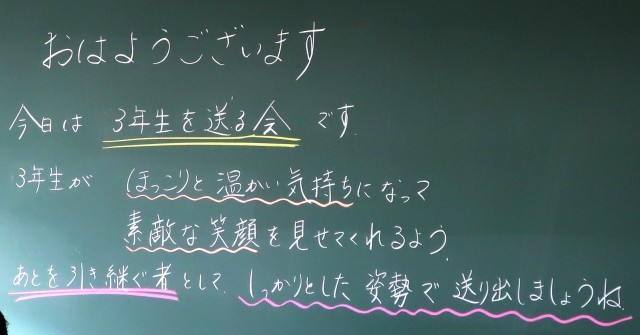 おはようございます
今日は 3年生を送る会 です.
3年生が ほっこりと 温かい気持ちになって
素敵な笑顔を見せてくれるよう.
あとを引き継ぐ者として. しっかりとした 姿勢で 送り出しましょうね.